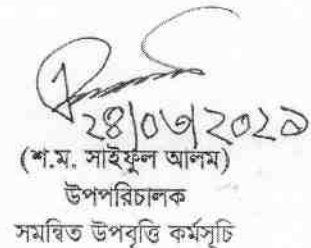 ২৪|০৬|২০২১
(শ.ম. সাইফুল আলম)
উপপরিচালক
সমন্বিত উপবৃত্তি কর্মসূচি